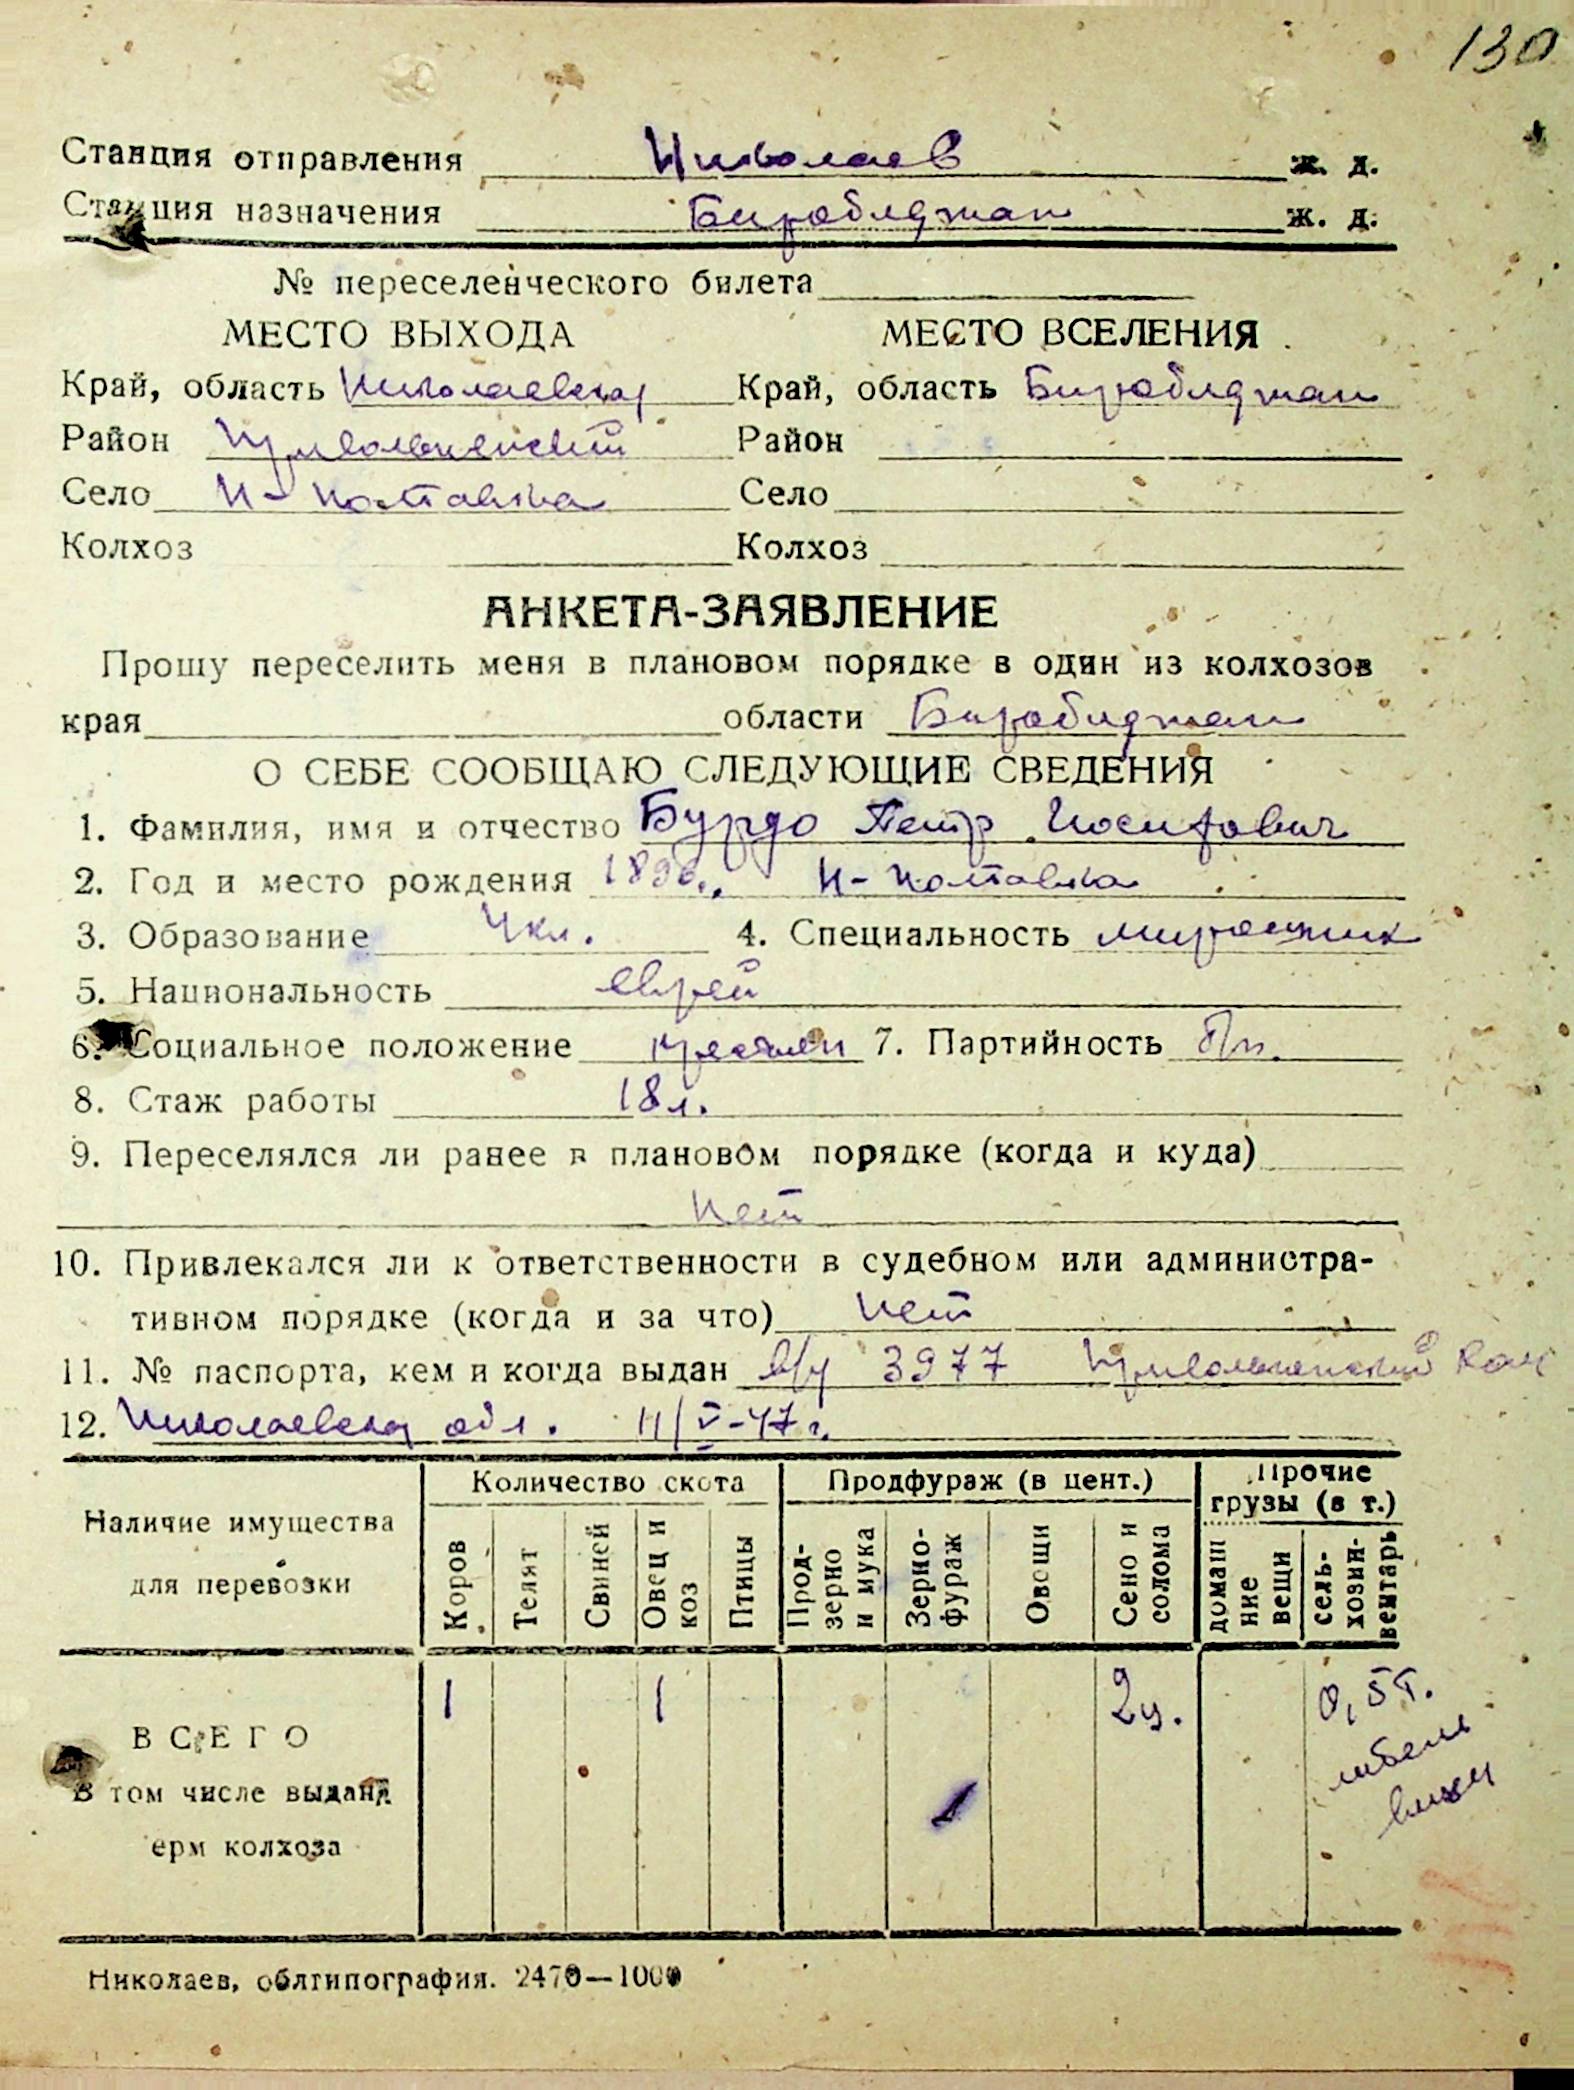 130
Станция отправления Николаев ж. д.
Станция назначения Биробиджан ж. д.
№ переселенческого билета
МЕСТО ВЫХОДА МЕСТО ВСЕЛЕНИЯ
Край, область Николаевская Край, область Биробиджан
Район Привольнянский Район
Село Н-Полтавка Село
Колхоз Колхоз
АНКЕТА-ЗАЯВЛЕНИЕ
Прошу переселить меня в плановом порядке в один из колхозов
края области Биробиджан
О СЕБЕ СООБЩАЮ СЛЕДУЮЩИЕ СВЕДЕНИЯ
1. Фамилия, имя и отчество Бурдо Петр Иосифович
2. Год и место рождения Н-Полтавка
3. Образование 4 кл. 4. Специальность
5. Национальность еврей
6. Социальное положение 7. Партийность
8. Стаж работы 18 л.
9. Переселялся ли ранее в плановом порядке (когда и куда)
Нет
10. Привлекался ли к ответственности в судебном или администра-
тивном порядке (когда и за что) Нет
11. № паспорта, кем и когда выдан 3977
12. Николаевская обл. 11/V-47 г.
Количество скота Продфураж (в цент.) Прочие
грузы (в т.)
Наличие имущества
для перевозки
Коров Телят Свиней Овец и коз Птицы Прод-зерно и мука Зерно-фураж Овощи Сено и солома домашние вещи сель-хозин-вентарь
ВСЕГО 1 1 2 ц. 0,5 т.
мебель
вещи
В том числе выдан
ерм колхоза
Николаев, облтипография. 2470—1000